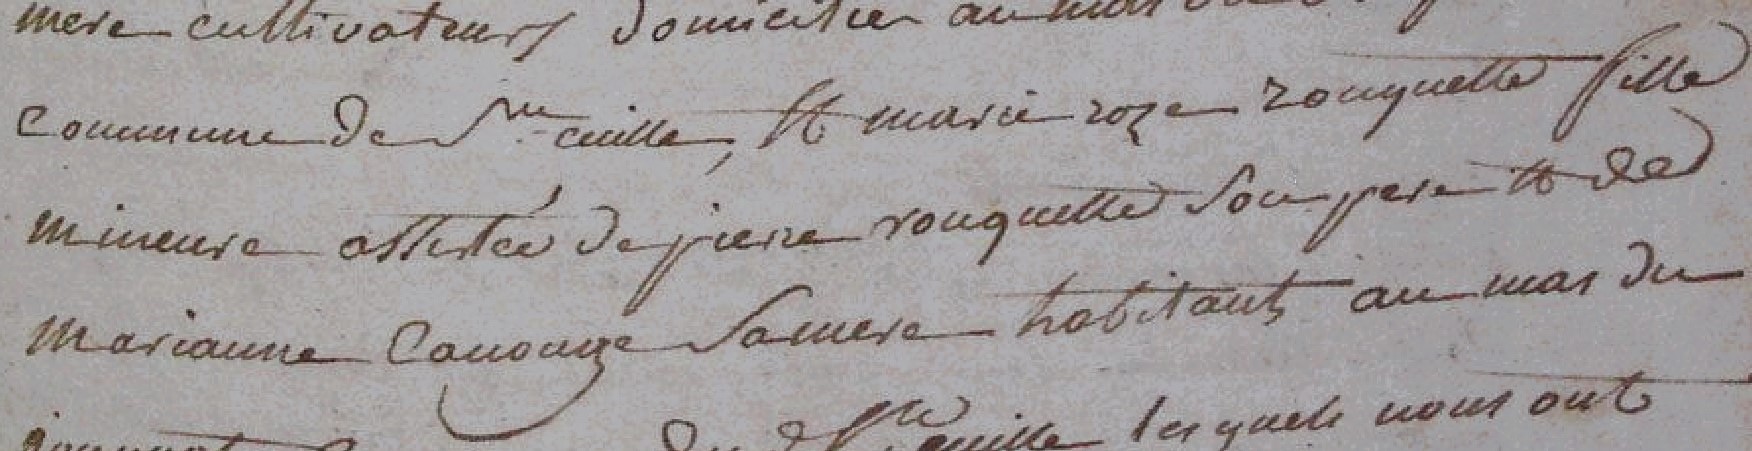 mere cultivateurs domicilié au mas
commune de Ste cecille, et marie roze rouquette fille
mineure assistée de pierre rouquette son pere et de
marianne Canouge sa mere habitants au mas du
lesquels nous ont